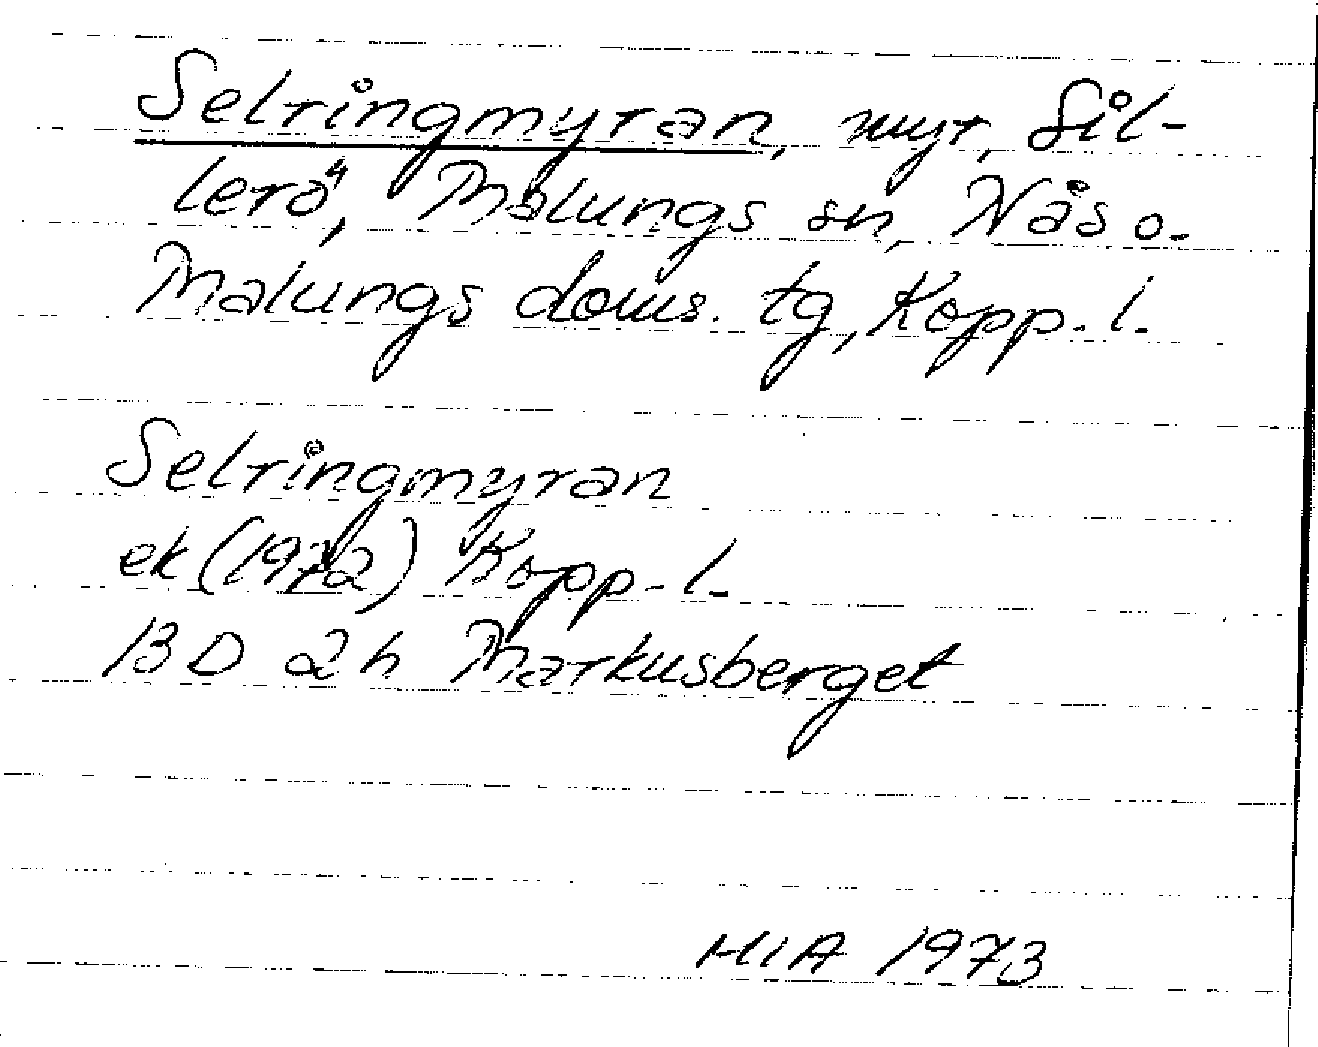 Selringmyran, myr, Sil-
lerö, Malungs sn, Nås o.
Malungs doms. tg, Kopp. l.
Selringmyran
ek (1972) Kopp. l.
13 D 2h Markusberget
HIA 1973